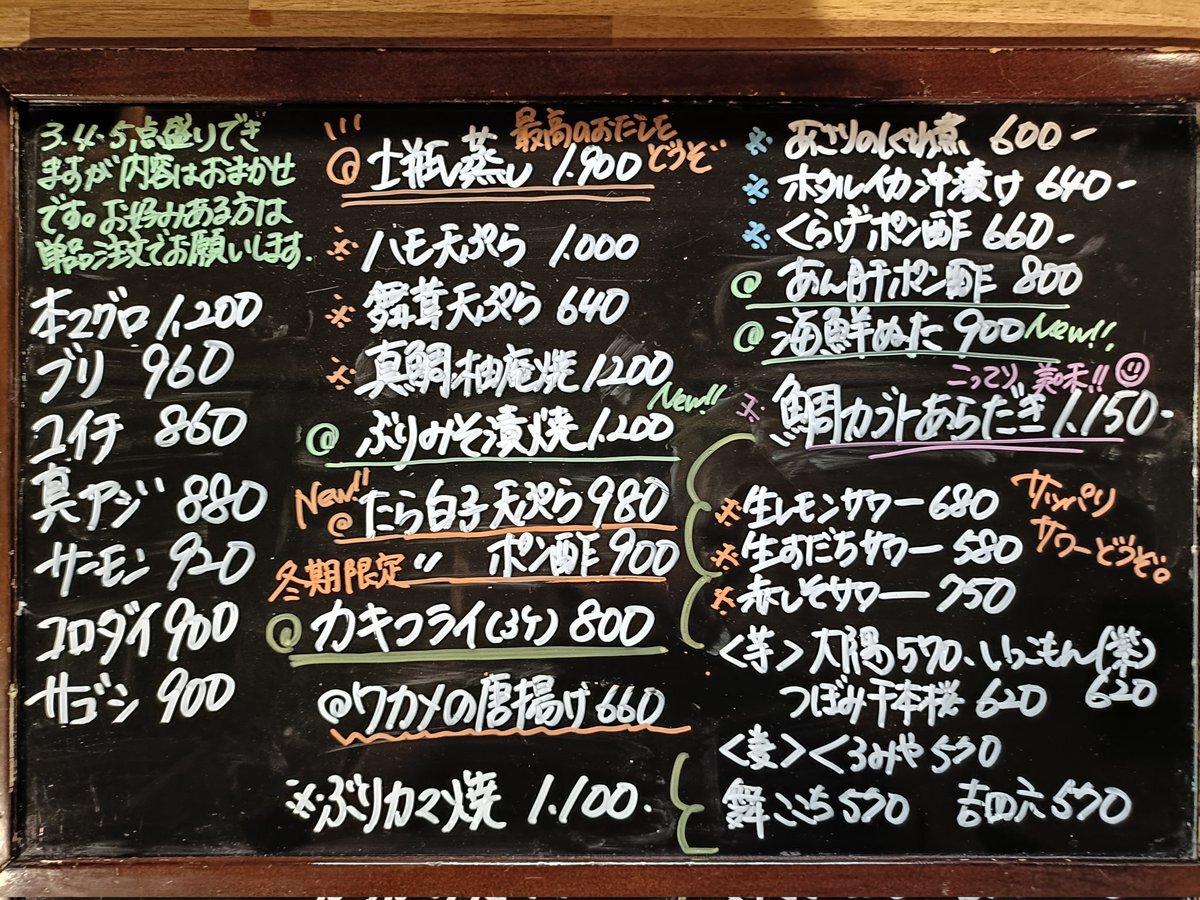 3.4.5点盛りでき
ますが内容はおまかせ
です。お好みある方は
単品注文でお願いします.
本マグロ 1,200
ブリ 960
コイチ 860
真アジ 880
サーモン 920
コロダイ 900
サゴシ 900
最高のおだしを
どうぞ
@ 土瓶蒸し 1.900
※ ハモ天ぷら 1.000
※ 舞茸天ぷら 640
※ 真鯛柚庵焼 1200
New!!
@ ぶりみそ漬焼 1.200
New!!
@ たら白子天ぷら 980
〃 ポン酢 900
冬期限定
@ カキフライ(3ケ) 800
@ワカメの唐揚げ 660
※ぶりカマ焼 1.100.
※ あさりのしぐれ煮 600-
※ ホタルイカ沖漬け 640-
※ くらげポン酢 660-
@ あん肝ポン酢 800
@ 海鮮ぬた 900 New!!
こってり 美味!!
※ 鯛カブトあらだき 1.150-
※ 生レモンサワー 680
※ 生すだちサワー 580
※ 赤しそサワー 750
サッパリ
サワーどうぞ。
<芋> 大陽 570、いっこもん(紫)
620
つぼみ千本桜 620
<麦> くろみや 570
舞ここち 570 吉四六 570